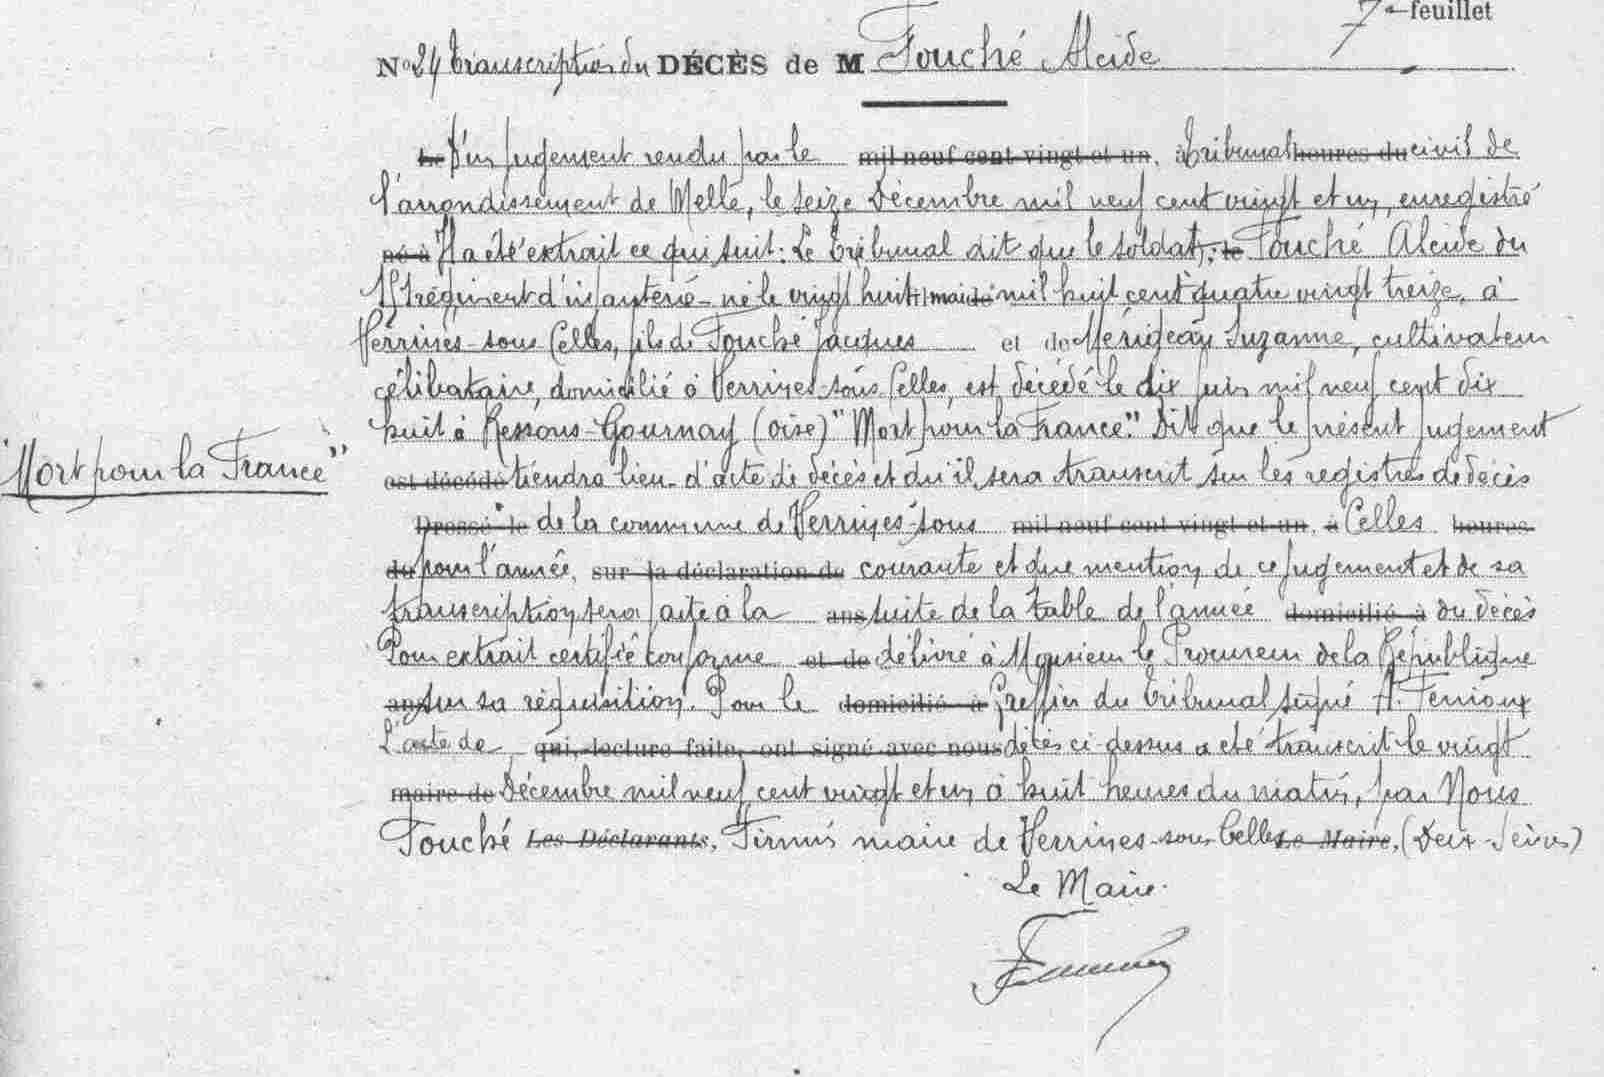 7e feuillet
No 24 transcription du DÉCÈS de M Fouché Alcide
Le D'un jugement rendu par le mil neuf cent vingt et un, à Tribunal heures du civil de
l'arrondissement de Melle, le seize Décembre mil neuf cent vingt et un, enregistré
né à Il a été extrait ce qui suit: Le Tribunal dit que le soldat, le Fouché Alcide du
régiment d'infanterie né le vingt huit mai mil huit cent quatre vingt treize, à
Verrines-sous Celles, fils de Fouché Jacques et de Mérigeau Suzanne, cultivateur
célibataire, domicilié à Verrines-sous Celles, est décédé le dix juin mil neuf cent dix
huit à Ressons-Gournay (Oise) "Mort pour la France". Dit que le présent jugement
"Mort pour la France"
est décédé tiendra lieu d'acte de décès et qu'il sera transcrit sur les registres de décès
Dressé le de la commune de Verrines-sous mil neuf cent vingt et un, à Celles heures
du pour l'année, sur la déclaration de courante et que mention de ce jugement et de sa
transcription sera faite à la ans suite de la table de l'année domicilié à du décès
Pour extrait certifié conforme et de délivré à Monsieur le Procureur de la République
ans sur sa réquisition. Pour le domicilié à Greffier du Tribunal signé A.
L'acte de qui, lecture faite, ont signé avec nous décès ci-dessus a été transcrit le vingt
maire de Décembre mil neuf cent vingt et un à huit heures du matin, par Nous
Fouché Les Déclarants, Firmin maire de Verrines-sous Celles Le Maire, (Deux-Sèvres)
Le Maire.